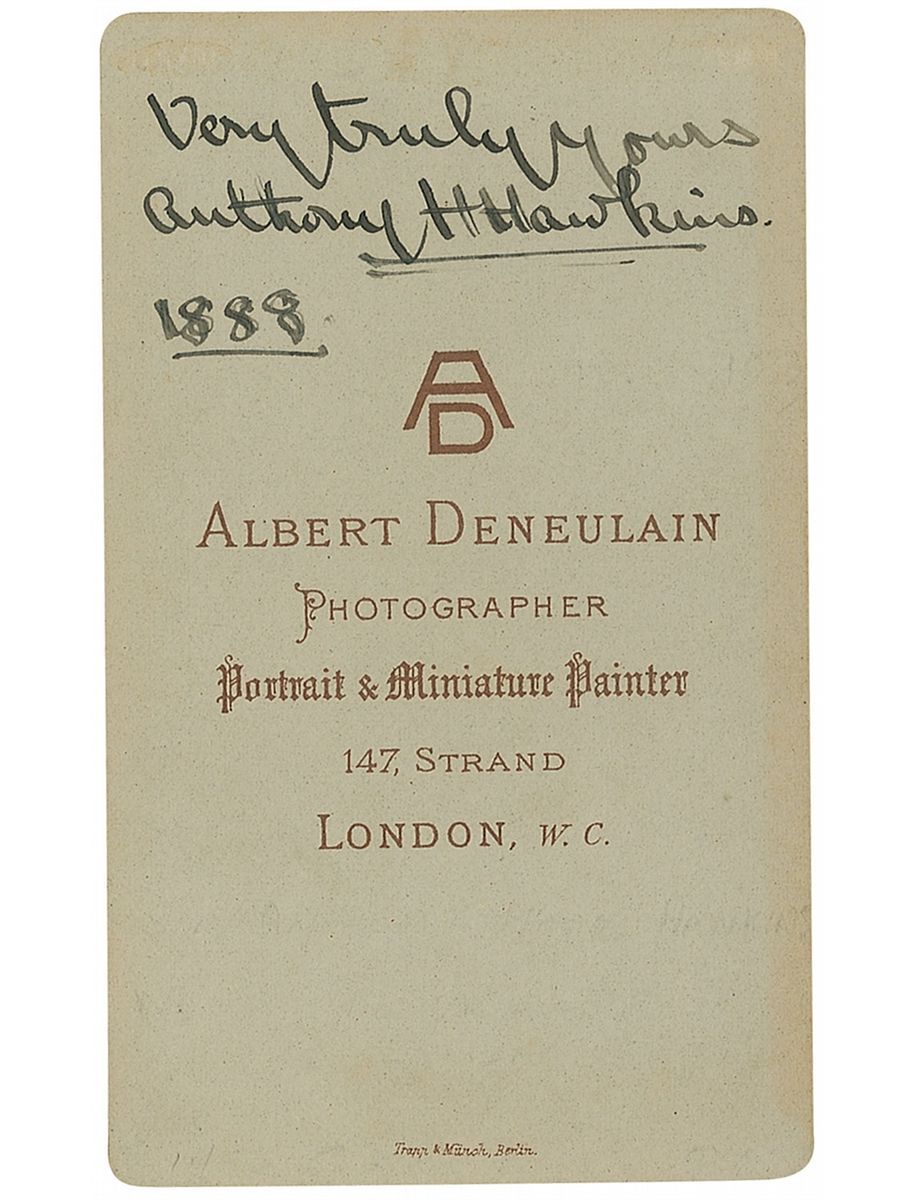 Very truly yours
Anthony H Hawkins.
1888
AD
ALBERT DENEULAIN
PHOTOGRAPHER
Portrait & Miniature Painter
147, STRAND
LONDON, W. C.
Trapp & Münch, Berlin.